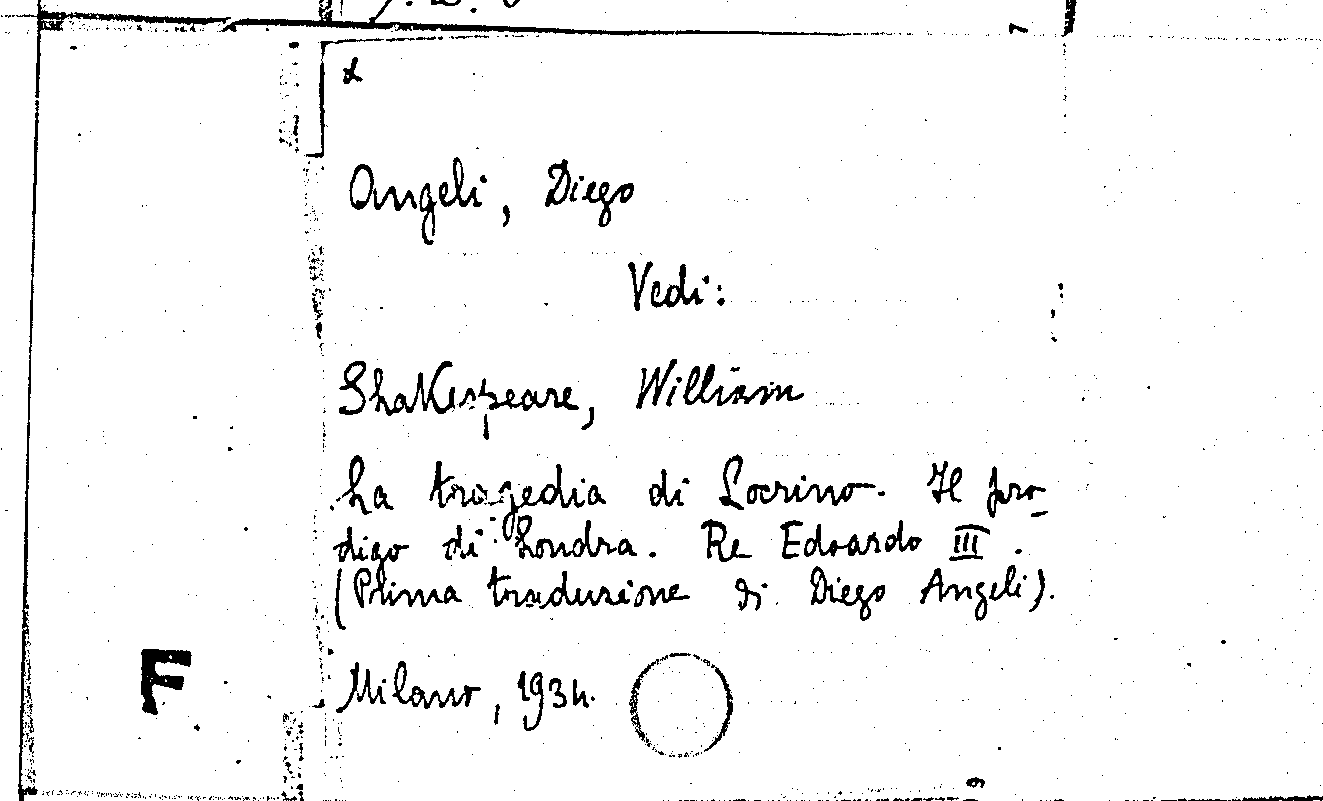 Angeli, Diego
Vedi:
Shakespeare, William
La tragedia di Locrino. Il pro-
digo di Londra. Re Edoardo III.
(Prima traduzione di Diego Angeli).
Milano, 1934.
F